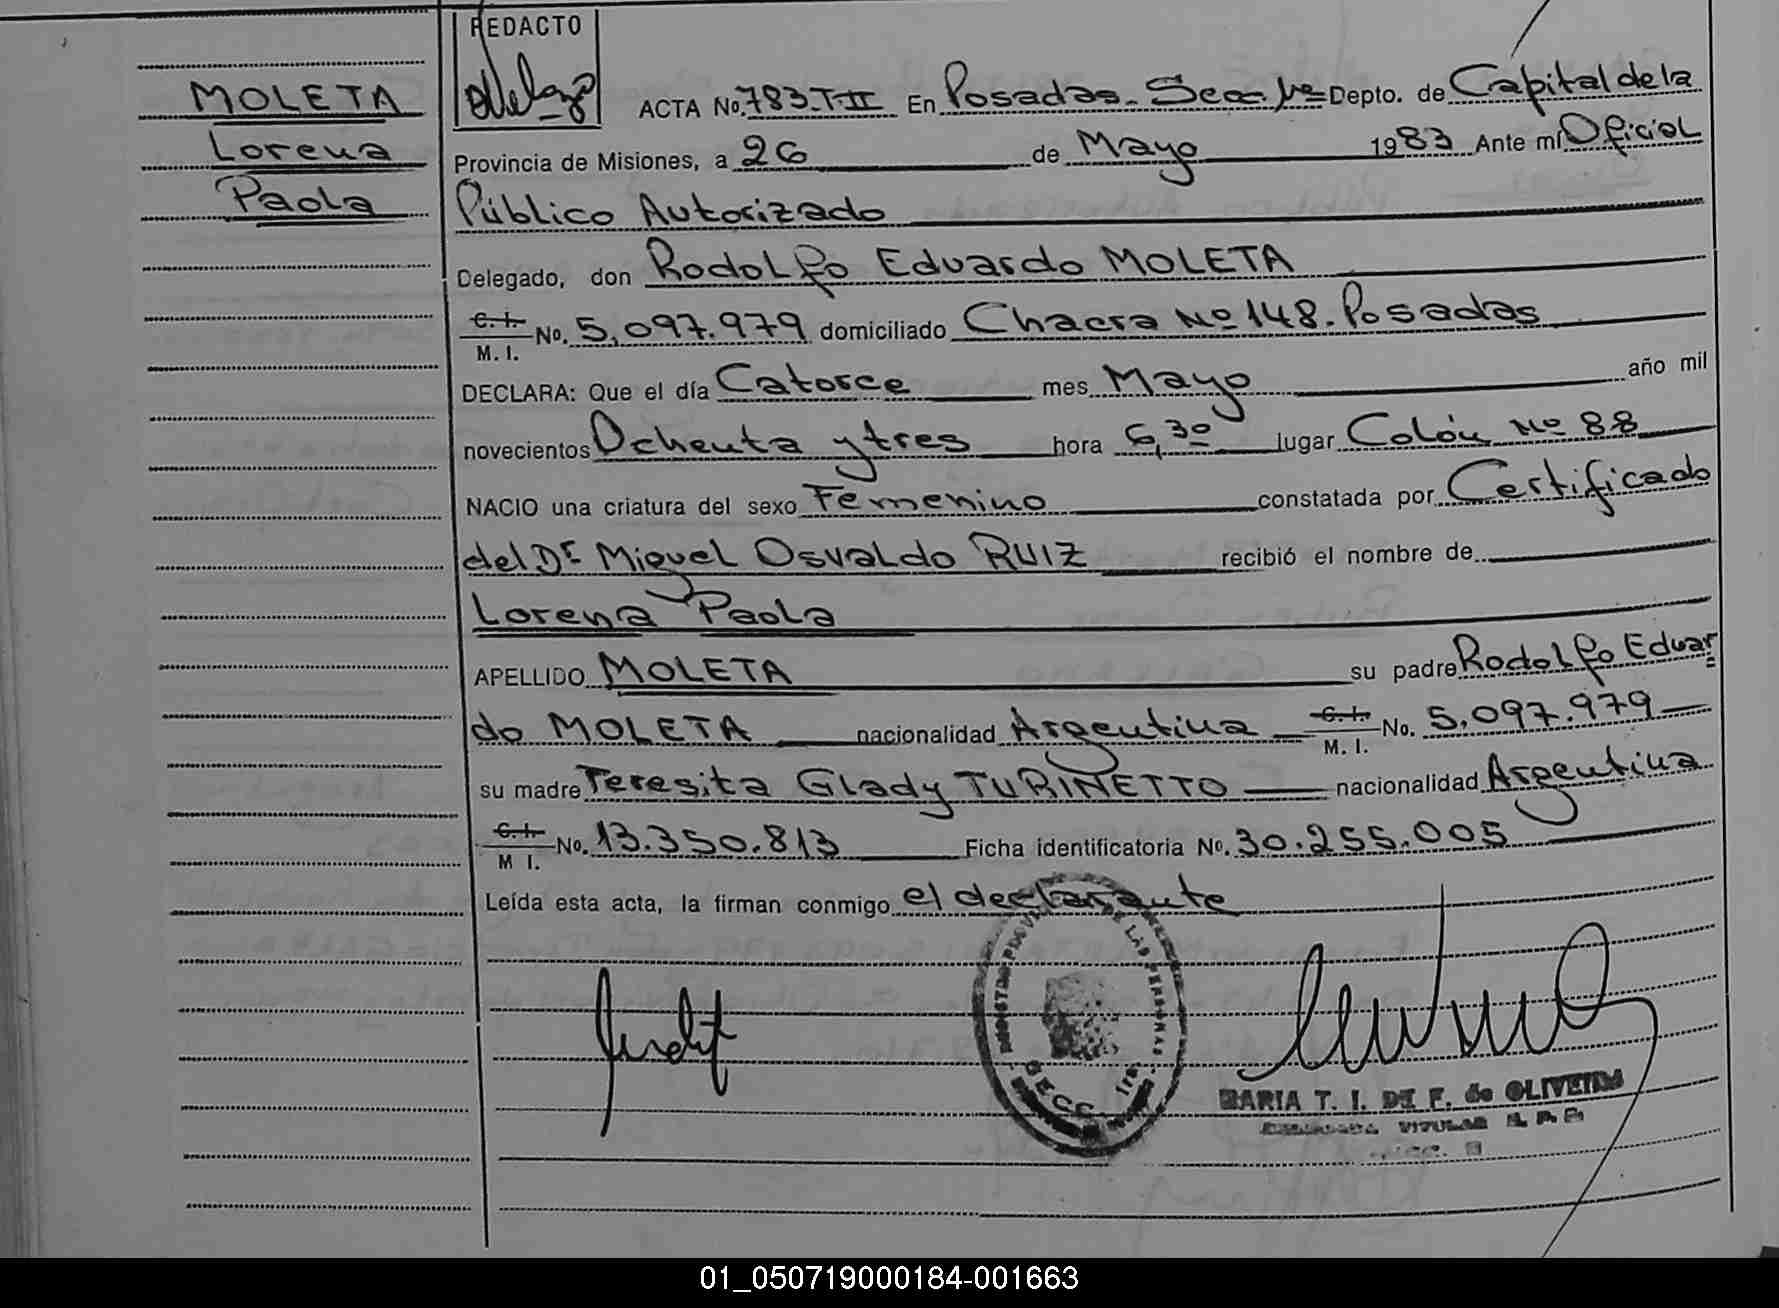 MOLETA
Lorena
Paola
REDACTO
ACTA No. 783.T-II En Posadas. Secc. 1ª Depto. de Capital de la
Provincia de Misiones, a 26 de Mayo 1983 Ante mí Oficial
Público Autorizado
Delegado, don Rodolfo Eduardo MOLETA
C. I. M. I. No. 5.097.979 domiciliado Chacra Nº 148. Posadas
DECLARA: Que el día Catorce mes Mayo año mil
novecientos Ochenta y tres hora 6,30 lugar Colón Nº 88
NACIO una criatura del sexo Femenino constatada por Certificado
del Dr Miguel Osvaldo RUIZ recibió el nombre de
Lorena Paola
APELLIDO MOLETA su padre Rodolfo Eduar
do MOLETA nacionalidad Argentina C. I. M. I. No. 5.097.979
su madre Teresita Glady TURINETTO nacionalidad Argentina
C. I. M I. No. 13.350.813 Ficha identificatoria No. 30.255.005
Leída esta acta, la firman conmigo el declarante
REGISTRO PROV. DE LAS PERSONAS
SECC. 1ra
MARIA T. I. DE F. de OLIVEIRA
TITULAR R. P. P.
01_050719000184-001663